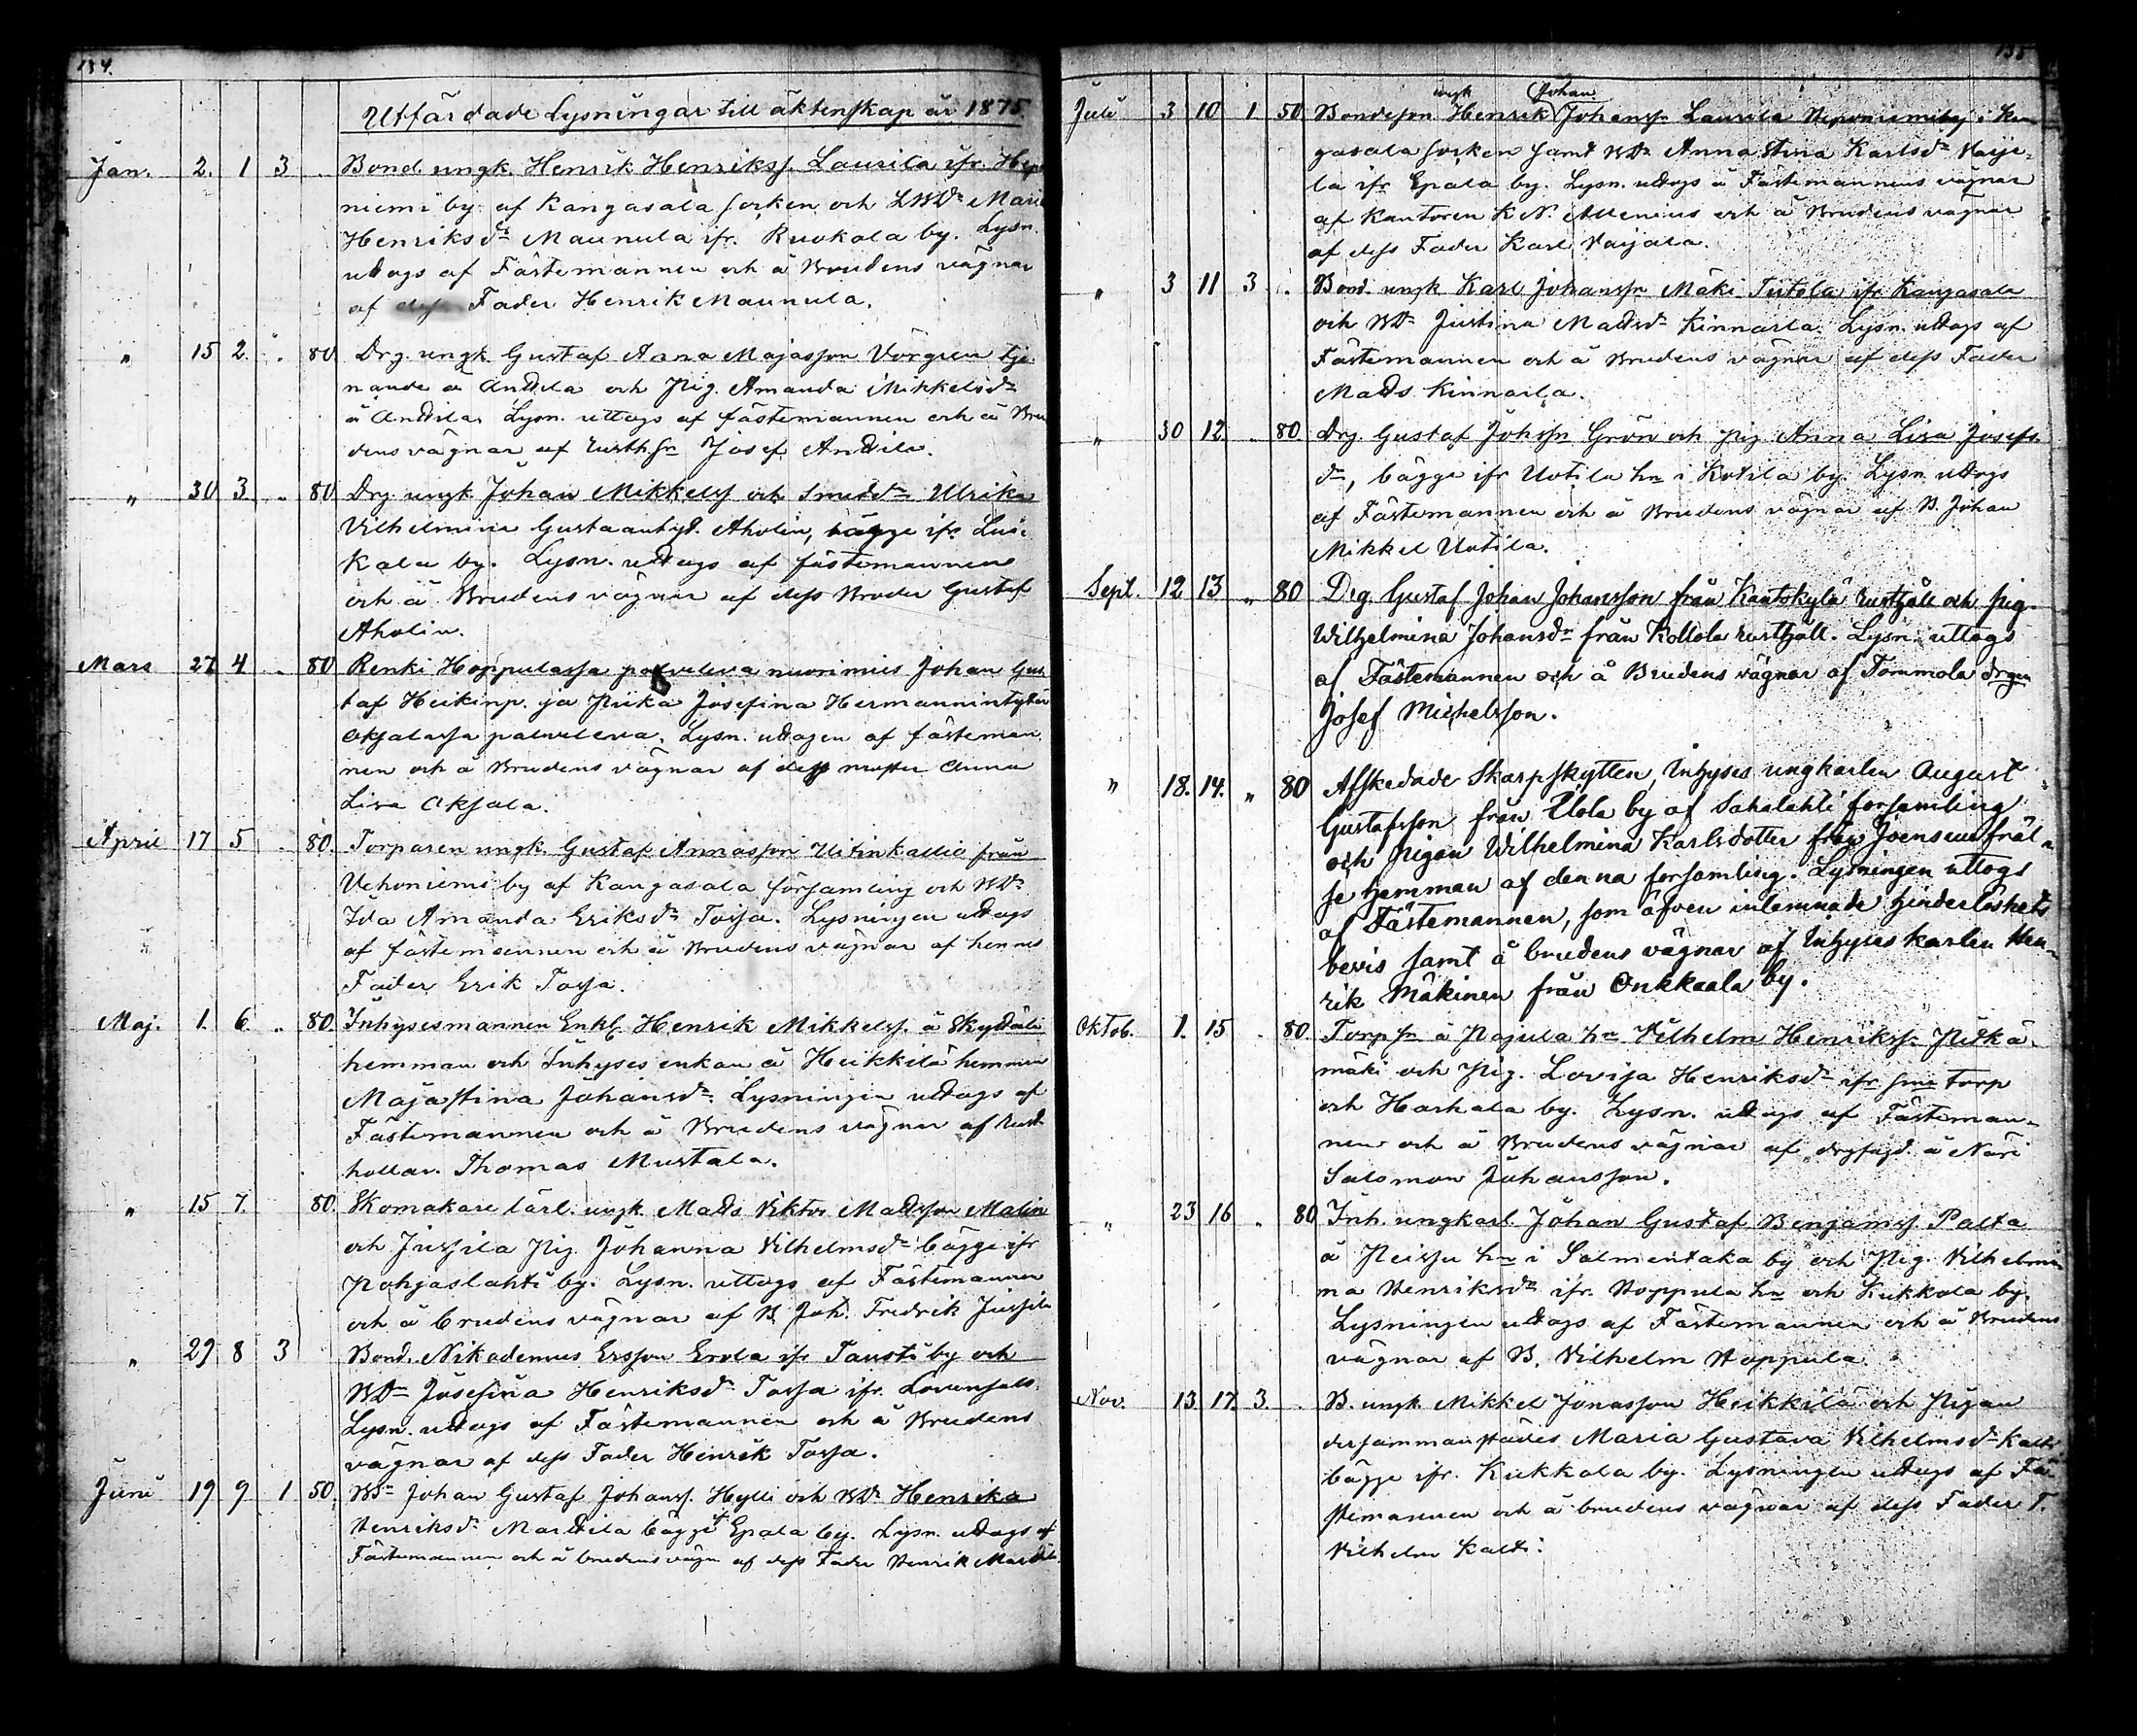 134.
Utfärdade Lysningar till äktenskap år 1875.
Jan. 2. 1 3 . Bond. ungk. Henrik Henrikss. Laurila ifr. Hepo
niemi by af Kangasala socken och LBDr Maria
Henriksdr Maunula ifr. Ruokola by. Lysn.
uttogs af Fästemannen och å Brudens vägnar
af dess Fader Henrik Maunula.
" 15 2. .. 80 Drg. ungk. Gustaf Anna Majasson Vörgren tje
nande å Anttila och Pig. Amanda Mikkelsdr
å Anttila. Lysn. uttogs af fästemannen och å Bru
dens vägnar af Rusthfr Josef Anttila.
" 30 3 .. 80 Drg. ungk. Johan Mikkelss och Smeddr Ulrika
Vilhelmina Gustaantyt. Aholin, bägge ifr Lui
kala by. Lysn. uttogs af fästemannen
och å Brudens vägnar af dess Broder Gustaf
Aholin.
Mars 27 4 .. 80 Renki Hoppulassa palveleva nuorimies Johan Gus
taf Heikinp. ja Piika Josefina Hermannintytär
Oksalassa palveleva. Lysn. uttagen af fästeman
nen och å Brudens vägnar af dess moster Anna
Lisa Oksala.
April 17 5 .. 80. Torparen ungk. Gustaf Annasson Uitinkallio från
Vehoniemi by af Kangasala församling och BDr
Ida Amanda Eriksdr Torsa. Lysningen uttogs
af fästemannen och å Brudens vägnar af hennes
Fader Erik Torsa.
Maj. 1. 6. .. 80. Inhysesmannen Enkl. Henrik Mikkelss. å Skyttäli
hemman och Inhyses enkan å Heikkilä hemman
Maja Stina Johansdr. Lysningen uttogs af
Fästemannen och å Brudens vägnar af Rust
hollar. Thomas Mustala.
" 15 7. 80. Skomakare lärl. ungk. Matts Viktor Mattsson Malin
och Jussila Pig. Johanna Vilhelmsdr bägge ifr
Pohjaslahti by. Lysn. uttogs af Fästemannen
och å brudens vägnar af B. Joh. Fredrik Jussila
" 29 8 3 Bond. Nikodemus Ersson Erola ifr Tausti by och
BDr Josefina Henriksdr Torsa ifr.
Lysn. uttogs af Fästemannen och å Brudens
vägnar af dess Fader Henrik Torsa.
Juni 19 9 1 50. BSn Johan Gustaf Johanss. Hylli och BDr Henrika
Henriksdr Marttila bägge fr Epala by. Lysn. uttogs af
Fästemannen och å brudens vägn af dess Fader Henrik Marttila.
135
ungk Johan
Juli 3 10 1 50 Bondeson Henrik Johanssn Laurila Heponiemi by i Kan
gasala socken samt BDr Anna Stina Karlsdr Vaija
la ifr Epala by. Lysn. uttogs å Fästemannens vägnar
af Kantoren K. N. Allenius och å Brudens vägnar
af dess Fader Karl Vaijala.
" 3 11 3 . Bond. ungk Karl Johanssn Mäki Tiitola ifr Kangasala
och BDr Justina Mattsdr Kinnarla. Lysn. uttogs af
Fästemannen och å Brudens vägnar af dess Fader
Matts Kinnarla.
" 30 12. .. 80 Drg. Gustaf Johssn Grön och Pig Anna Lisa Josefs
dr, bägge ifr Uotila hn i Kotila by. Lysn. uttogs
af Fästemannen och å Brudens vägnar af B. Johan
Mikkel Uotila.
Sept. 12 13 " 80 Drg. Gustaf Johan Johansson från Kautskylä rusthåll och Pig.
Wilhelmina Johansdr från Kollola rusthåll. Lysn. uttogs
af Fästemannen och å Brudens vägnar af Tommola drgn
Josef Michelsson.
" 18. 14. " 80 Afskedade Skarpskytten, Inhyses ungkarlen August
Gustafsson från Ulola by af Sahalahti församling
och Pigan Wilhelmina Karlsdotter från Joensuu fräl
se hemman af denna församling. Lysningen uttogs
af Fästemannen, som äfven inlemnade hinderlöshets
bevis samt å brudens vägnar af Inhyses karlen Hen
rik Mäkinen från Onkkaala by.
Oktob. 1. 15 . 80. Torpsn å Pajula hn Vilhelm Henrikssn Pitkä
mäki och Pig. Lovisa Henriksdr ifr sme torp
och Harhala by. Lysn. uttogs af Fästeman
nen och å Brudens vägnar af å Näri
Salomon Johansson.
" 23 16 .. 80 Inh. ungkarl. Johan Gustaf Benjamss. Palta
å Peissu hn i Salmentaka by och Pig. Vilhelmi
na Henriksdr ifr. Hoppula hn och Kukkola by.
Lysningen uttogs af Fästemannen och å Brudens
vägnar af B. Vilhelm Hoppula.
Nov. 13. 17. 3. . B. ungk. Mikkel Jonasson Heikkilä och Pigan
dersammanstädes Maria Gustava Vilhelmsdr Kalti
bägge ifr. Kukkola by. Lysningen uttogs af Fä
stemannen och å brudens vägnar af dess Fader T.
Vilhelm Kalti.